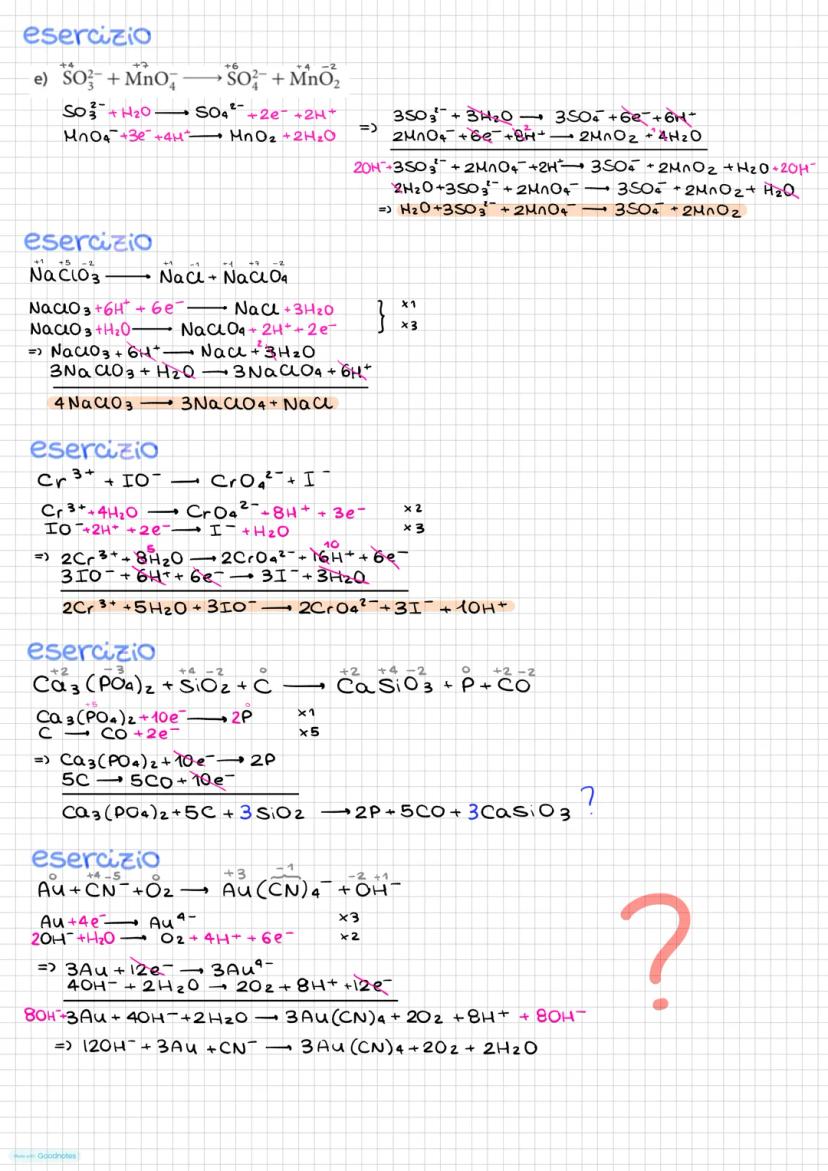 esercizio
+4 +7 +6 +4 -2
e) SO₃²⁻ + MnO₄⁻ ⟶ SO₄²⁻ + MnO₂
SO₃²⁻ + H₂O ⟶ SO₄²⁻ + 2e⁻ + 2H⁺
MnO₄⁻ + 3e⁻ + 4H⁺ ⟶ MnO₂ + 2H₂O
=> 3SO₃²⁻ + 3H₂O ⟶ 3SO₄⁻ + 6e⁻ + 6H⁺
2MnO₄⁻ + 6e⁻ + 8H⁺ 2 ⟶ 2MnO₂ + 4H₂O
2OH⁻ + 3SO₃²⁻ + 2MnO₄⁻ + 2H⁺ ⟶ 3SO₄⁻ + 2MnO₂ + H₂O + 2OH⁻
2H₂O + 3SO₃²⁻ + 2MnO₄⁻ ⟶ 3SO₄⁻ + 2MnO₂ + H₂O
=> H₂O + 3SO₃²⁻ + 2MnO₄⁻ ⟶ 3SO₄⁻ + 2MnO₂
esercizio
+1 +5 -2 +1 -1 +1 +7 -2
NaClO₃ ⟶ NaCl + NaClO₄
NaClO₃ + 6H⁺ + 6e⁻ ⟶ NaCl + 3H₂O } x1
NaClO₃ + H₂O ⟶ NaClO₄ + 2H⁺ + 2e⁻ x3
=> NaClO₃ + 6H⁺ ⟶ NaCl + 2 3H₂O
3NaClO₃ + H₂O ⟶ 3NaClO₄ + 6H⁺
4NaClO₃ ⟶ 3NaClO₄ + NaCl
esercizio
Cr³⁺ + IO⁻ ⟶ CrO₄²⁻ + I⁻
Cr³⁺ + 4H₂O ⟶ CrO₄²⁻ + 8H⁺ + 3e⁻ x2
IO⁻ + 2H⁺ + 2e⁻ ⟶ I⁻ + H₂O x3
5 10
=> 2Cr³⁺ + 8H₂O ⟶ 2CrO₄²⁻ + 16H⁺ + 6e⁻
3IO⁻ + 6H⁺ + 6e⁻ ⟶ 3I⁻ + 3H₂O
2Cr³⁺ + 5H₂O + 3IO⁻ ⟶ 2CrO₄²⁻ + 3I⁻ + 10H⁺
esercizio
+2 -3 +4 -2 0 +2 +4 -2 0 +2 -2
Ca₃(PO₄)₂ + SiO₂ + C ⟶ CaSiO₃ + P + CO
+5 0
Ca₃(PO₄)₂ + 10e⁻ ⟶ 2P x1
C ⟶ CO + 2e⁻ x5
=> Ca₃(PO₄)₂ + 10e⁻ ⟶ 2P
5C ⟶ 5CO + 10e⁻
Ca₃(PO₄)₂ + 5C + 3SiO₂ ⟶ 2P + 5CO + 3CaSiO₃ ?
esercizio
0 +4 -5 0 +3 -1 -2 +1
Au + CN⁻ + O₂ ⟶ Au(CN)₄⁻ + OH⁻
Au + 4e⁻ ⟶ Au⁴⁻ x3
2OH⁻ + H₂O ⟶ O₂ + 4H⁺ + 6e⁻ x2
=> 3Au + 12e⁻ ⟶ 3Au⁴⁻
4OH⁻ + 2H₂O ⟶ 2O₂ + 8H⁺ + 12e⁻
8OH⁻ + 3Au + 4OH⁻ + 2H₂O ⟶ 3Au(CN)₄ + 2O₂ + 8H⁺ + 8OH⁻
=> 12OH⁻ + 3Au + CN⁻ ⟶ 3Au(CN)₄ + 2O₂ + 2H₂O
?
Made with Goodnotes